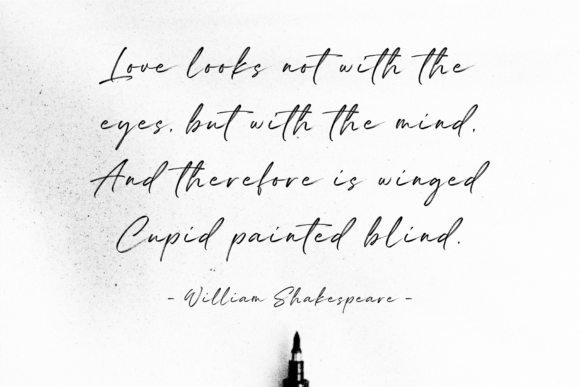 Love looks not with the
eyes, but with the mind.
And therefore is winged
Cupid painted blind.
- William Shakespeare -